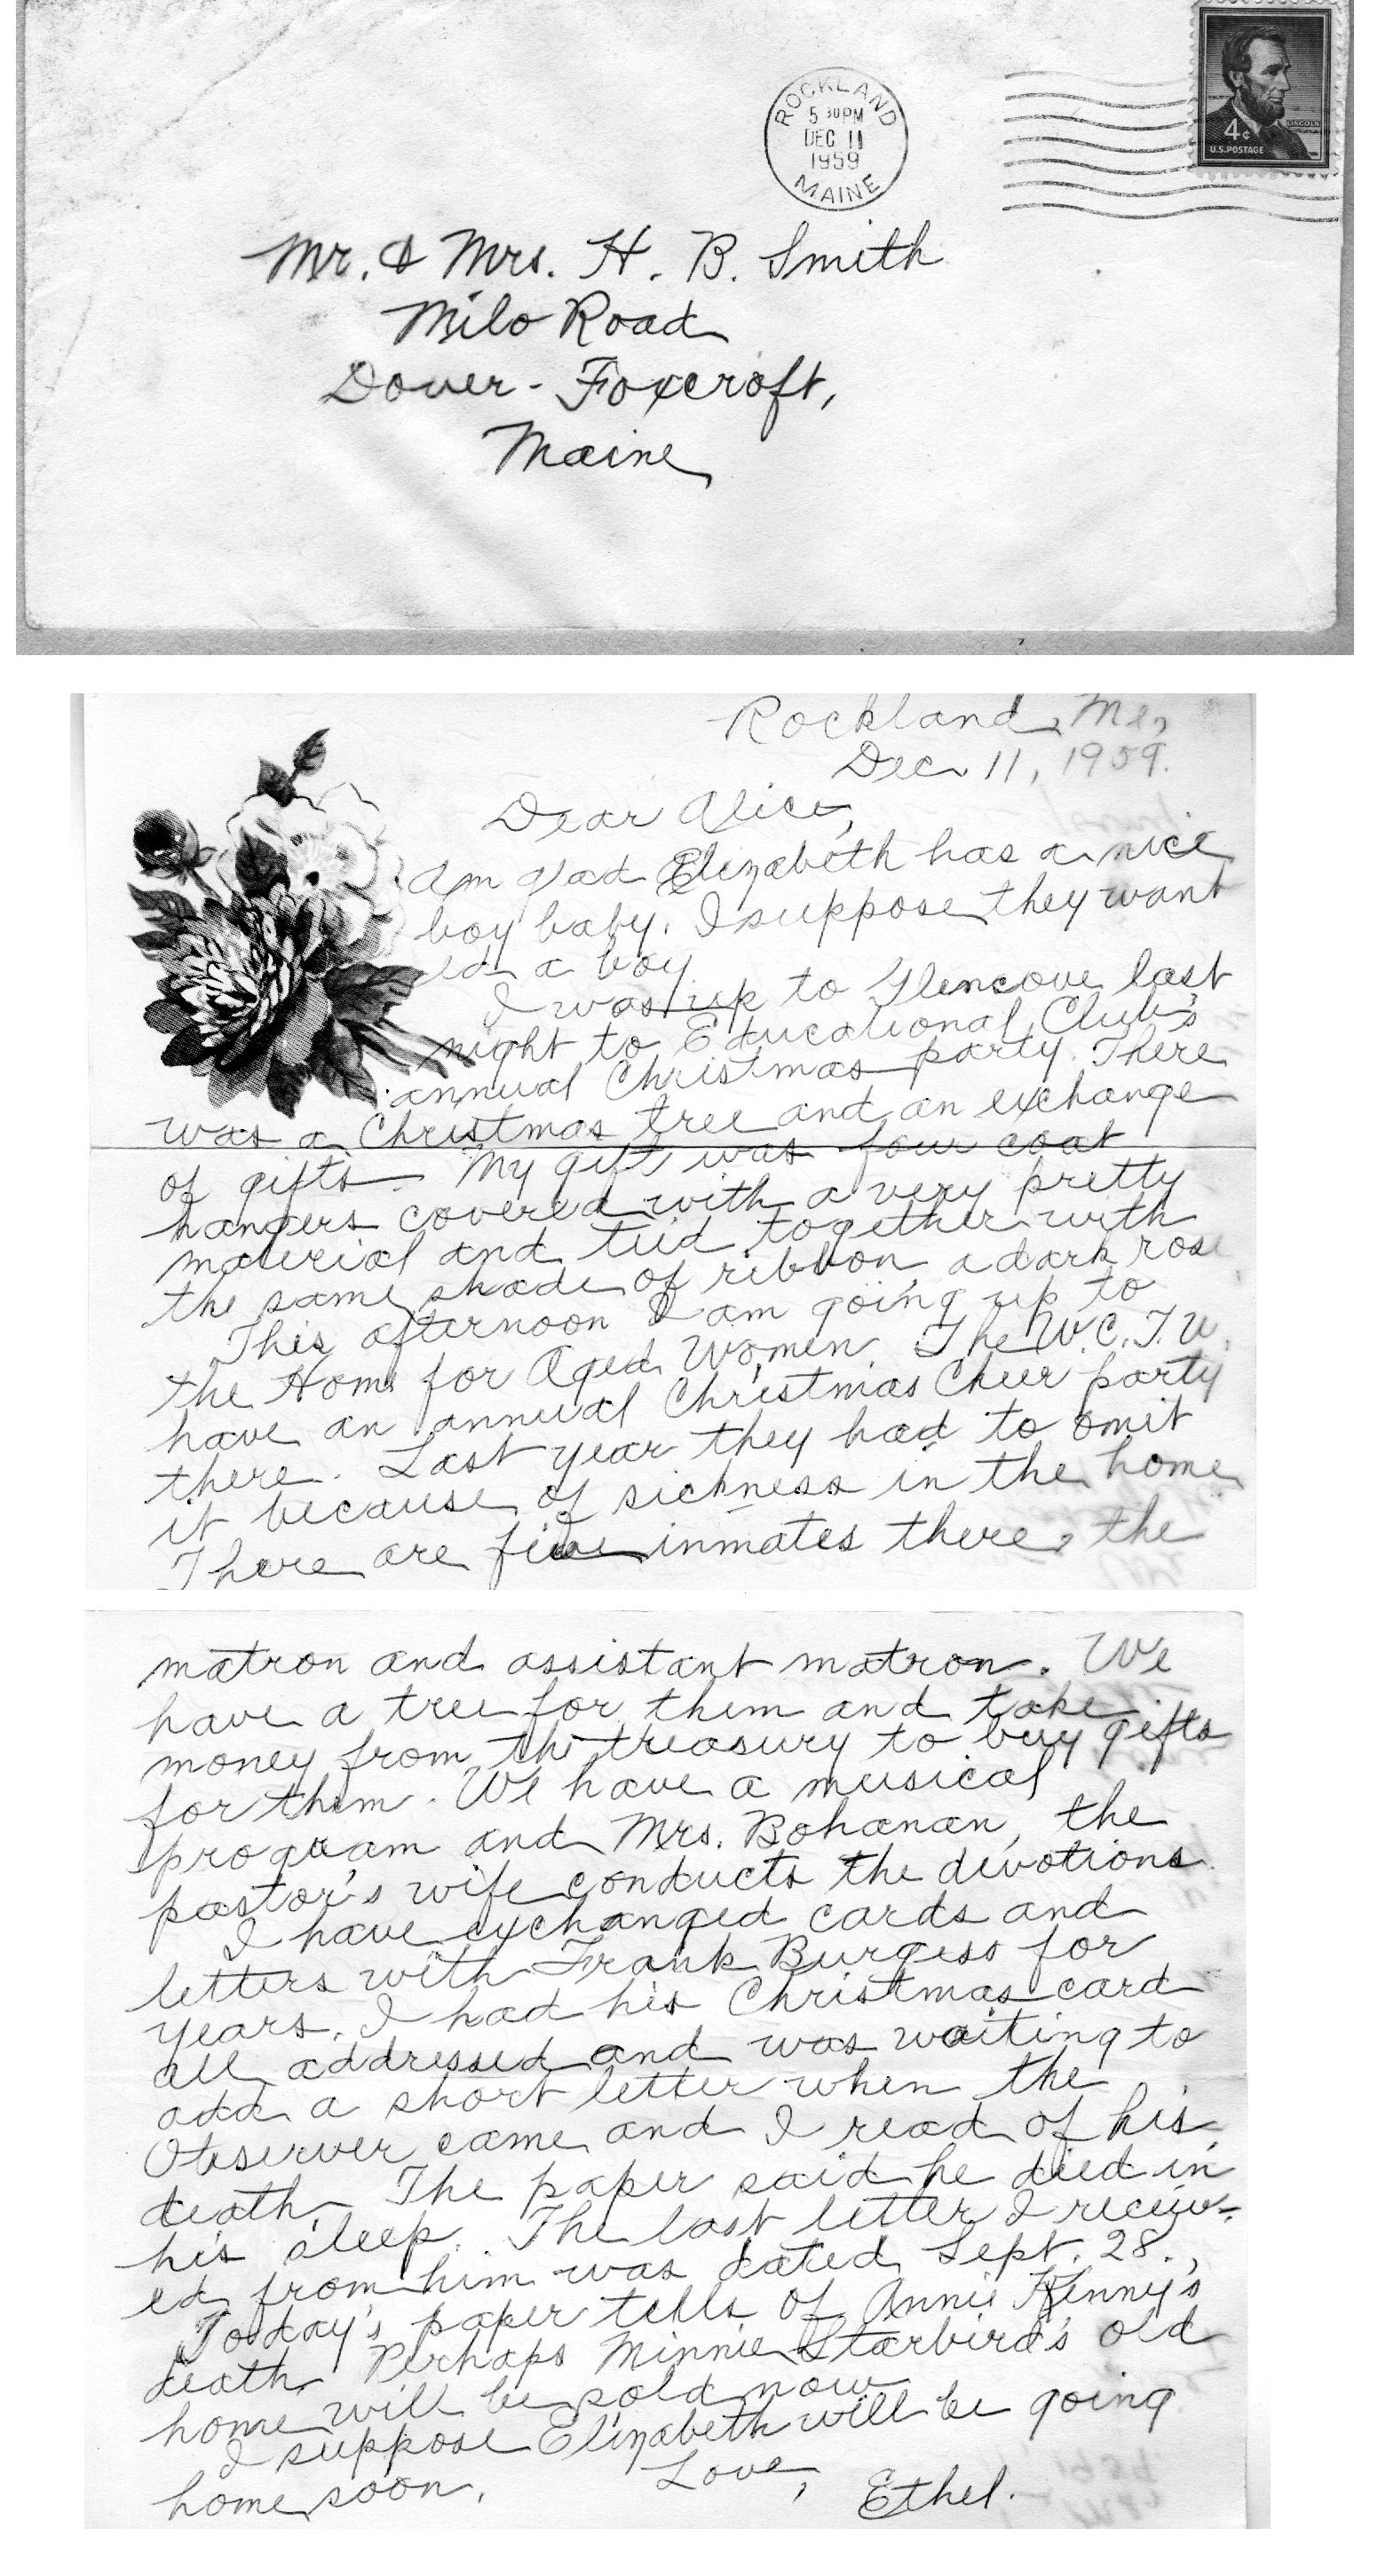 ROCKLAND
5 30 PM
DEC 11
1959
MAINE
LINCOLN
4¢
U.S. POSTAGE
Mr. & Mrs. H. B. Smith
Milo Road
Dover-Foxcroft,
Maine
Rockland, Me,
Dec. 11, 1959.
Dear Alice,
Am glad Elizabeth has a nice
boy baby. I suppose they want
ed a boy
I was up to Glencove last
night to Educational Club's
annual Christmas party. There
was a Christmas tree and an exchange
of gifts. My gift was four coat
hangers covered with a very pretty
material and tied together with
the same shade of ribbon, a dark rose
This afternoon I am going up to
the Home for Aged Women. The W.C.T.U.
have an annual Christmas Cheer party
there. Last year they had to omit
it because of sickness in the home
There are five inmates there, the
matron and assistant matron. We
have a tree for them and take
money from the treasury to buy gifts
for them. We have a musical
program and Mrs. Bohanan, the
pastor's wife conducts the devotions.
I have exchanged cards and
letters with Frank Burgess for
years. I had his Christmas card
all addressed and was waiting to
add a short letter when the
Observer came and I read of his
death. The paper said he died in
his sleep. The last letter I receiv-
ed from him was dated Sept. 28.,
Today's paper tells of Annie Kenny's
death. Perhaps Minnie Starbird's old
home will be sold now.
I suppose Elizabeth will be going
home soon.
Love,
Ethel.